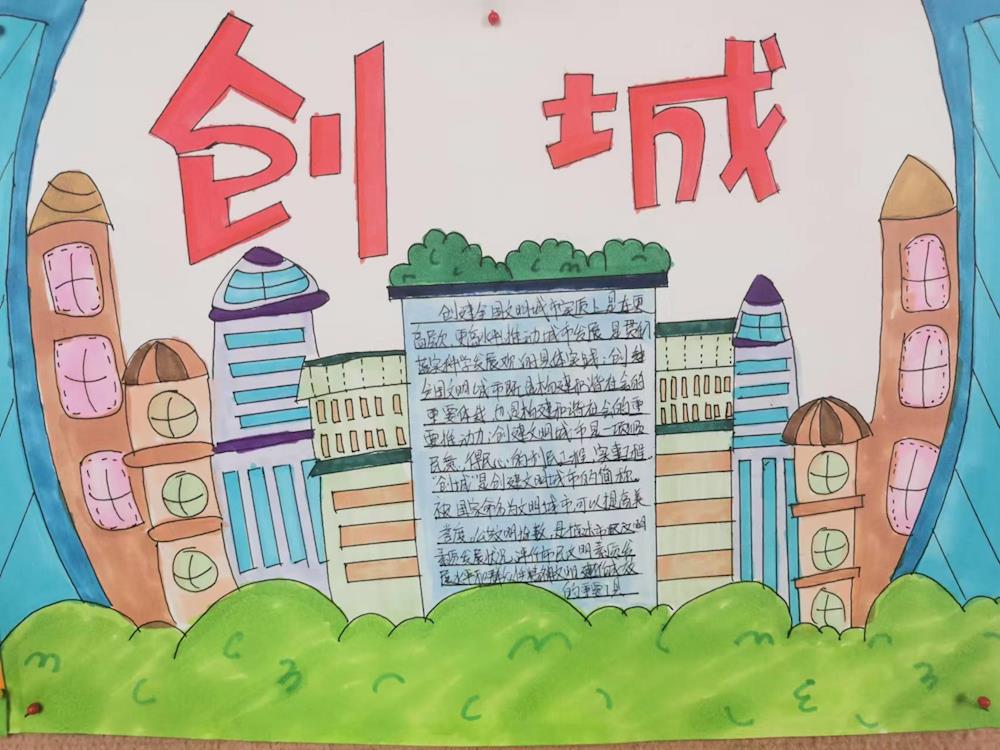 创城
创建全国文明城市实质上是在更
高层次、更高水平推动城市发展,是我们
落实科学发展观的具体实践。创建
全国文明城市既是构建和谐社会的
重要体我,也是构建和谐社会的重
要推动力。创建文明城市是一项顺
民意、得民心的利民工程、实事工程。
"创城"是创建文明城市的简称。
被国家命名为文明城市可以提高美
誉度。公共文明指数,是城市
发展状况、评价市民文明素质
水平
的重要工具